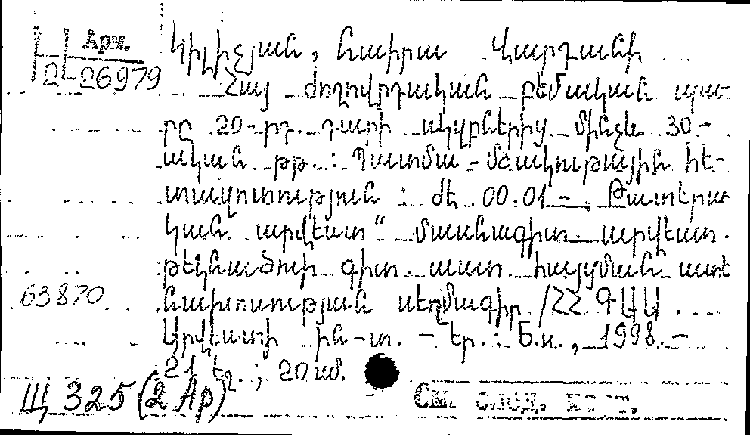 Арм.
2-26979
Կիլիչյան, Նաիրա Վարդանի
Հայ ժողովրդական բեմական պա-
րը 20-րդ դարի սկզբներից մինչև 30-
ական թթ.: Պատմա-մշակութային հե-
տազոտություն: ժԷ 00.01 - „Թատերա
կան արվեստ" մասնագիտ. արվեստ.
թեկնածուի գիտ. աստ. հայցման ատե
63870 նախոսության սեղմագիր /ՀՀ ԳԱԱ
Արվեստի ին-տ. - Եր.: Б.и., 1998.-
21 էջ.; 20 սմ.
Щ 325 (2 Ар)
См. след. карт.